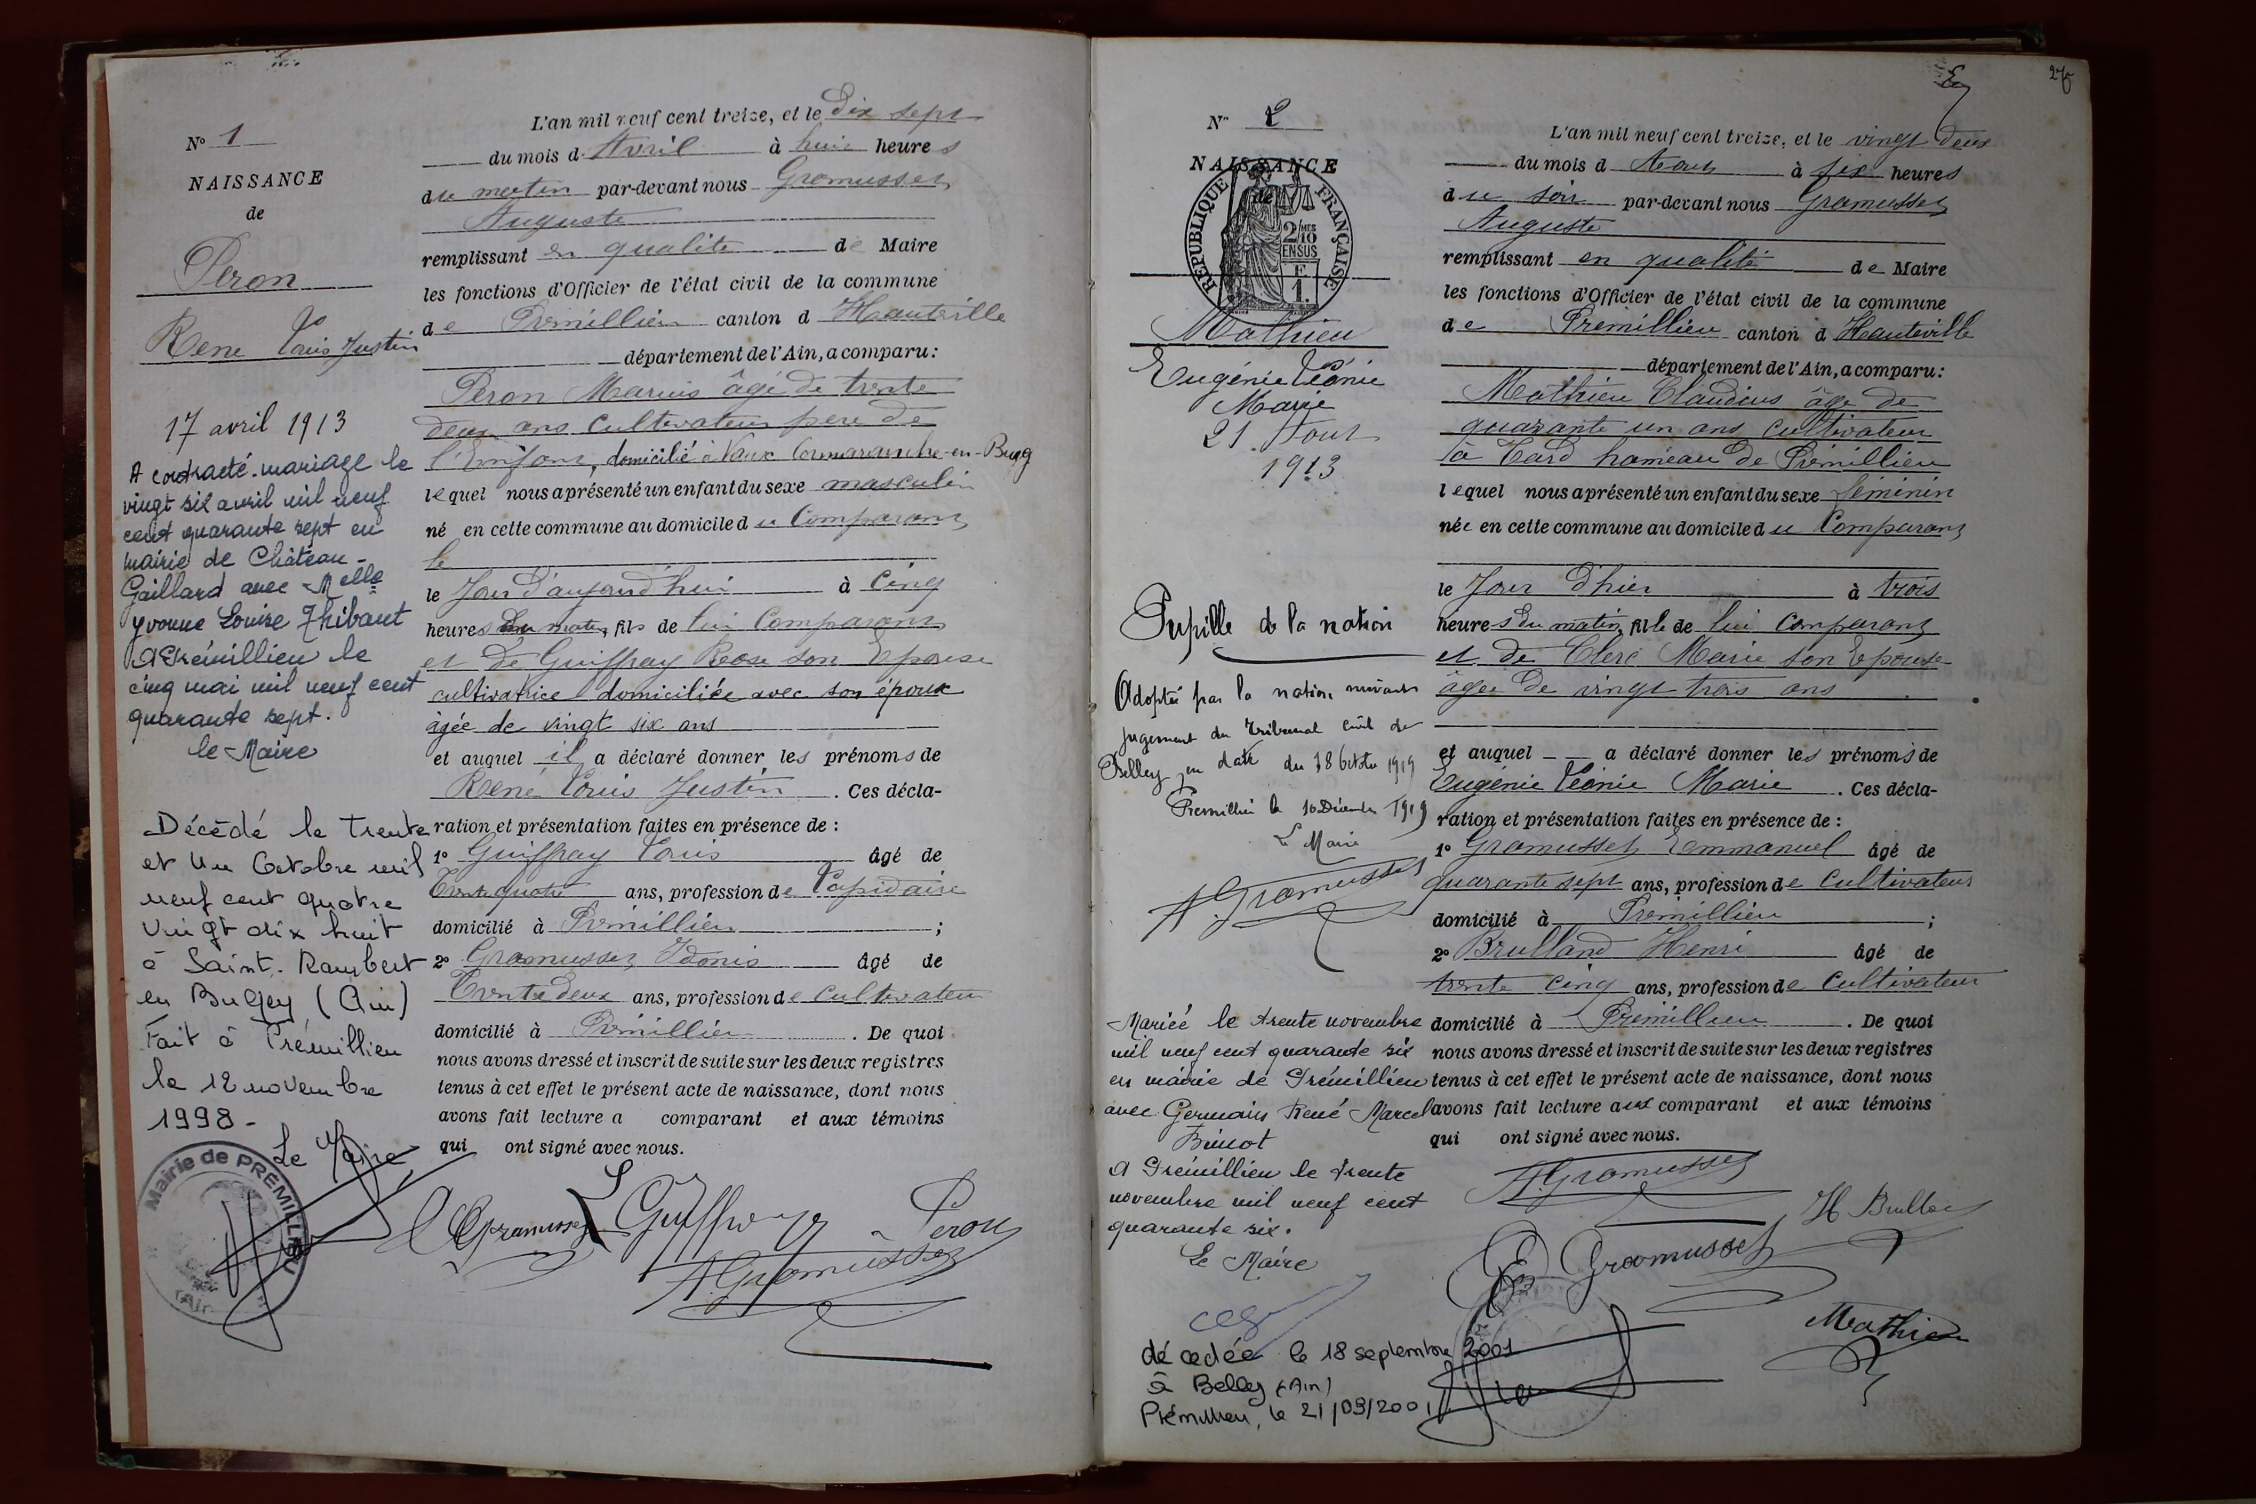 N° 1
NAISSANCE
de
Peron
René Louis Justin
17 avril 1913
A contracté mariage le
vingt six avril mil neuf
cent quarante sept en
mairie de Château-
Gaillard avec Melle
Yvonne Louise Thibaut
A Prémillieu le
cinq mai mil neuf cent
quarante sept.
le Maire
Décédé le Trente
et un Octobre mil
neuf cent quatre
vingt dix huit
à Saint-Rambert
en Bugey (Ain)
Fait à Prémillieu
le 12 novembre
1998-
Le Maire
Mairie de PREMILLIEU
(Ain)
L'an mil neuf cent treize, et le Dix sept
du mois d Avril à huit heures
du matin par-devant nous Gromusset
Auguste
remplissant en qualité de Maire
les fonctions d'Officier de l'état civil de la commune
de Prémillieu canton d Hauteville
département de l'Ain, a comparu:
Peron Marius âgé de trente
deux ans Cultivateur père de
l'Enfant, domicilié à Vaux Cormaranche-en-Bugey
lequel nous a présenté un enfant du sexe masculin
né en cette commune au domicile du Comparant
le
le Jour d'aujourd'hui à Cinq
heures du matin, fils de lui Comparant
et de Guiffray Rose son Epouse
cultivatrice domiciliée avec son époux
âgée de vingt six ans
et auquel il a déclaré donner les prénoms de
René Louis Justin. Ces décla-
ration et présentation faites en présence de:
1° Guiffray Louis âgé de
Trente quatre ans, profession de Lapidaire
domicilié à Prémillieu;
2° Gromusset Adonis âgé de
Trente deux ans, profession de Cultivateur
domicilié à Prémillieu. De quoi
nous avons dressé et inscrit de suite sur les deux registres
tenus à cet effet le présent acte de naissance, dont nous
avons fait lecture a comparant et aux témoins
qui ont signé avec nous.
Gramusset L Guiffray Peron
A Gromusset
27
N° 2
NAISSANCE
de
REPUBLIQUE FRANÇAISE
2/10 MES
EN SUS
E
1.
Mathieu
Eugénie Léonie
Marie
21 Aout
1913
Pupille de la nation
Adoptée par la nation suivant
jugement du Tribunal civil de
Belley en date du 18 Octobre 1919
Prémillieu le 10 Décembre 1919
Le Maire
A. Gromusset
Mariée le trente novembre
mil neuf cent quarante six
en mairie de Prémillieu
avec Germain René Marcel
A Prémillieu le trente
novembre mil neuf cent
quarante six.
Le Maire
décédée le 18 septembre 2001
à Belley (Ain)
Prémillieu, le 21/09/2001
L'an mil neuf cent treize, et le vingt deux
du mois d Aout à six heures
du soir par-devant nous Gromusset
Auguste
remplissant en qualité de Maire
les fonctions d'Officier de l'état civil de la commune
de Prémillieu canton d Hauteville
département de l'Ain, a comparu:
Mathieu Claudius âgé de
quarante un ans Cultivateur
à hameau de Prémillieu
lequel nous a présenté un enfant du sexe féminin
née en cette commune au domicile du Comparant
le Jour d'hier à trois
heures du matin, fille de lui Comparant
et de Clerc Marie son Epouse
âgée de vingt trois ans
et auquel a déclaré donner les prénoms de
Eugénie Léonie Marie. Ces décla-
ration et présentation faites en présence de:
1° Gromusset Emmanuel âgé de
quarante sept ans, profession de Cultivateur
domicilié à Prémillieu;
2° Brulland Henri âgé de
trente Cinq ans, profession de Cultivateur
domicilié à Prémillieu. De quoi
nous avons dressé et inscrit de suite sur les deux registres
tenus à cet effet le présent acte de naissance, dont nous
avons fait lecture aux comparant et aux témoins
qui ont signé avec nous.
A. Gromusset
H Brulland
E Gromusset
Mathieu